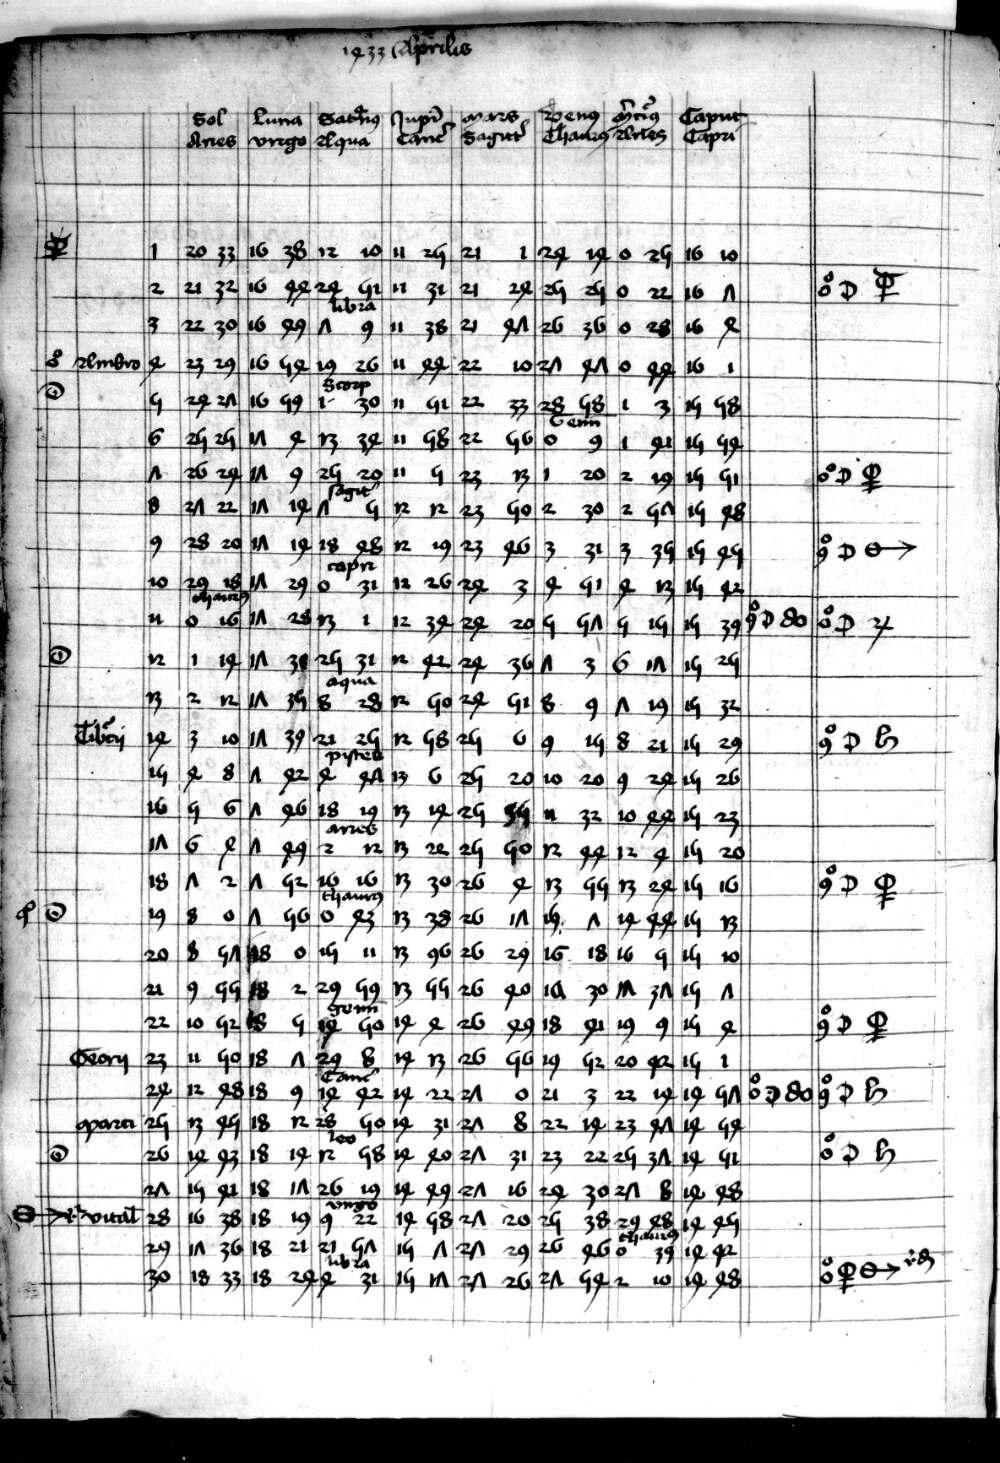 1433 Aprilis
Sol Luna Saturnus Jupi Mars Venus Caput
Aries virgo Aqua Canc Sagitt Thaurus Aries Capri
1 20 33 16 38 12 10 11 25 21 1 24 14 0 25 16 10
2 21 32 16 44 24 51 11 31 21 24 25 25 0 22 16 7 ☍ ☽ ♀
libra
3 22 30 16 49 7 9 11 38 21 47 26 36 0 28 16 4
Ambro 4 23 29 16 54 19 26 11 44 22 10 27 47 0 44 16 1
Scorp
5 24 27 16 59 1 30 11 51 22 33 28 58 1 3 15 58
Gemi
6 25 25 17 4 13 34 11 58 22 56 0 9 1 41 15 54
7 26 24 17 9 25 20 11 5 23 13 1 20 2 19 15 51 ☍ ☽ ♀
sagit
8 27 22 17 14 7 5 12 12 23 50 2 30 2 57 15 48
9 28 20 17 19 18 48 12 19 23 46 3 31 3 35 15 45 ☌ ☽ ♂
capri
10 29 18 17 29 0 31 12 26 24 3 4 51 4 13 15 42
thaurus
11 0 16 17 28 13 1 12 34 24 20 5 57 5 15 15 39 ☌ ☽ ☊ ☍ ☽ ♃
12 1 14 17 25 31 12 42 24 36 7 3 6 17 15 25
aqua
13 2 12 17 35 8 28 12 50 24 51 8 9 7 19 15 32
Tiburcii 14 3 10 17 39 21 25 12 58 25 6 9 15 8 21 15 29 ☌ ☽ ♄
pisces
15 4 8 7 42 4 47 13 6 25 20 10 20 9 24 15 26
16 5 6 7 46 18 19 13 14 25 11 32 10 44 15 23
aries
17 6 4 7 49 2 12 13 22 25 50 12 44 12 4 15 20
18 7 2 7 52 16 16 13 30 26 4 13 55 13 24 15 16 ☌ ☽ ♀
thaurus
19 8 0 7 56 0 43 13 38 26 17 15 7 14 44 15 13
20 8 57 18 0 15 11 13 46 26 29 16 18 16 5 15 10
21 9 55 18 2 29 59 13 55 26 40 17 30 17 37 15 7
gemi
22 10 52 18 5 14 50 14 4 26 49 18 41 19 9 15 4 ☌ ☽ ♀
Georii 23 11 50 18 7 29 8 14 13 26 56 19 52 20 42 15 1
Canc
24 12 48 18 9 14 42 14 22 27 0 21 3 22 14 14 57 ☍ ☽ ☊ ☌ ☽ ♄
Marci 25 13 45 18 12 28 50 14 31 27 8 22 14 23 47 14 54
leo
26 14 43 18 14 12 58 14 40 27 31 23 22 25 37 14 51 ☍ ☽ ♄
27 15 41 18 17 26 19 14 49 27 16 24 30 27 8 14 48
virgo
vital 28 16 38 18 19 9 22 14 58 27 20 25 38 29 28 14 45
thaurus
29 17 36 18 21 21 57 15 7 27 29 26 46 0 39 14 42
libra
30 18 33 18 24 4 31 15 17 27 26 27 54 2 10 14 48 ☍ ♀ ♂